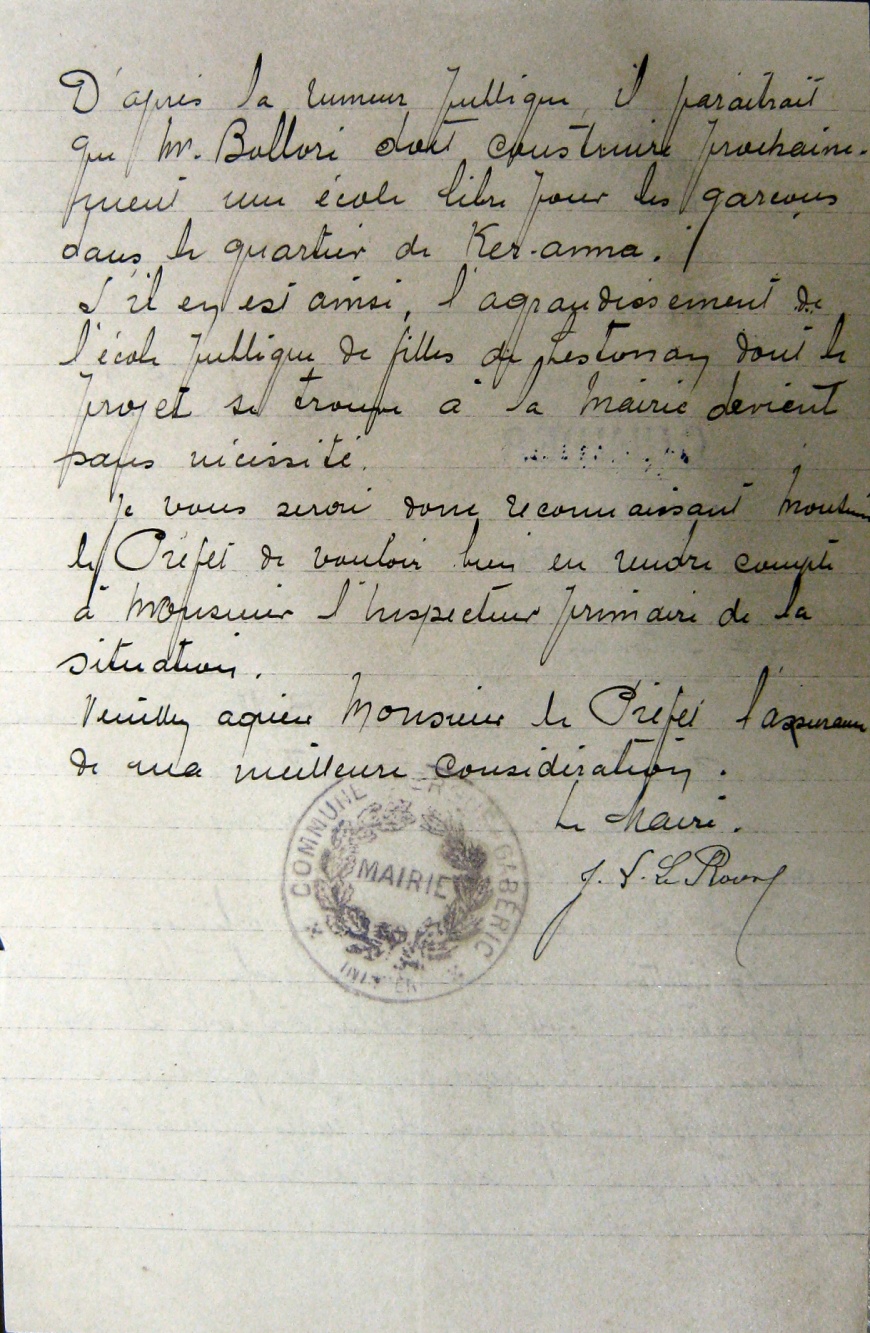 D'après la rumeur publique, il paraîtrait
que Mr. Bolloré doit construire prochaine-
ment une école libre pour les garçons
dans le quartier de Ker-anna.
S'il en est ainsi, l'agrandissement de
l'école publique de filles de Lestonan dont le
projet se trouve à la Mairie devient
sans nécessité.
Je vous serai donc reconnaissant Monsieur
le Préfet de vouloir bien en rendre compte
à Monsieur l'Inspecteur primaire de la
situation.
Veuillez agréer Monsieur le Préfet l'assurance
de ma meilleure considération.
Le Maire.
J. S. Le Rouxy
COMMUNE GABERIC
MAIRIE